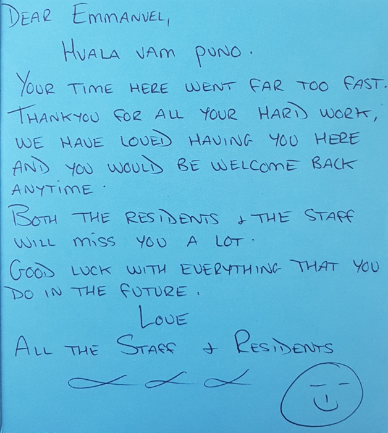 DEAR EMMANUEL,
HVALA VAM PUNO.
YOUR TIME HERE WENT FAR TOO FAST.
THANKYOU FOR ALL YOUR HARD WORK,
WE HAVE LOVED HAVING YOU HERE
AND YOU WOULD BE WELCOME BACK
ANYTIME.
BOTH THE RESIDENTS + THE STAFF
WILL MISS YOU A LOT.
GOOD LUCK WITH EVERYTHING THAT YOU
DO IN THE FUTURE.
LOVE
ALL THE STAFF + RESIDENTS